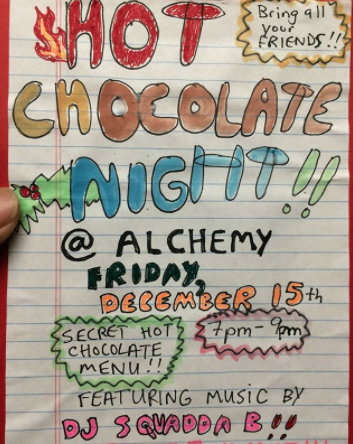 HOT
Bring all
your
FRIENDS!!
CHOCOLATE
NIGHT!!
@ ALCHEMY
FRIDAY,
DECEMBER 15th
SECRET HOT
CHOCOLATE
MENU!!
7pm-9pm
FEATURING MUSIC BY
DJ SQUADDA B!!